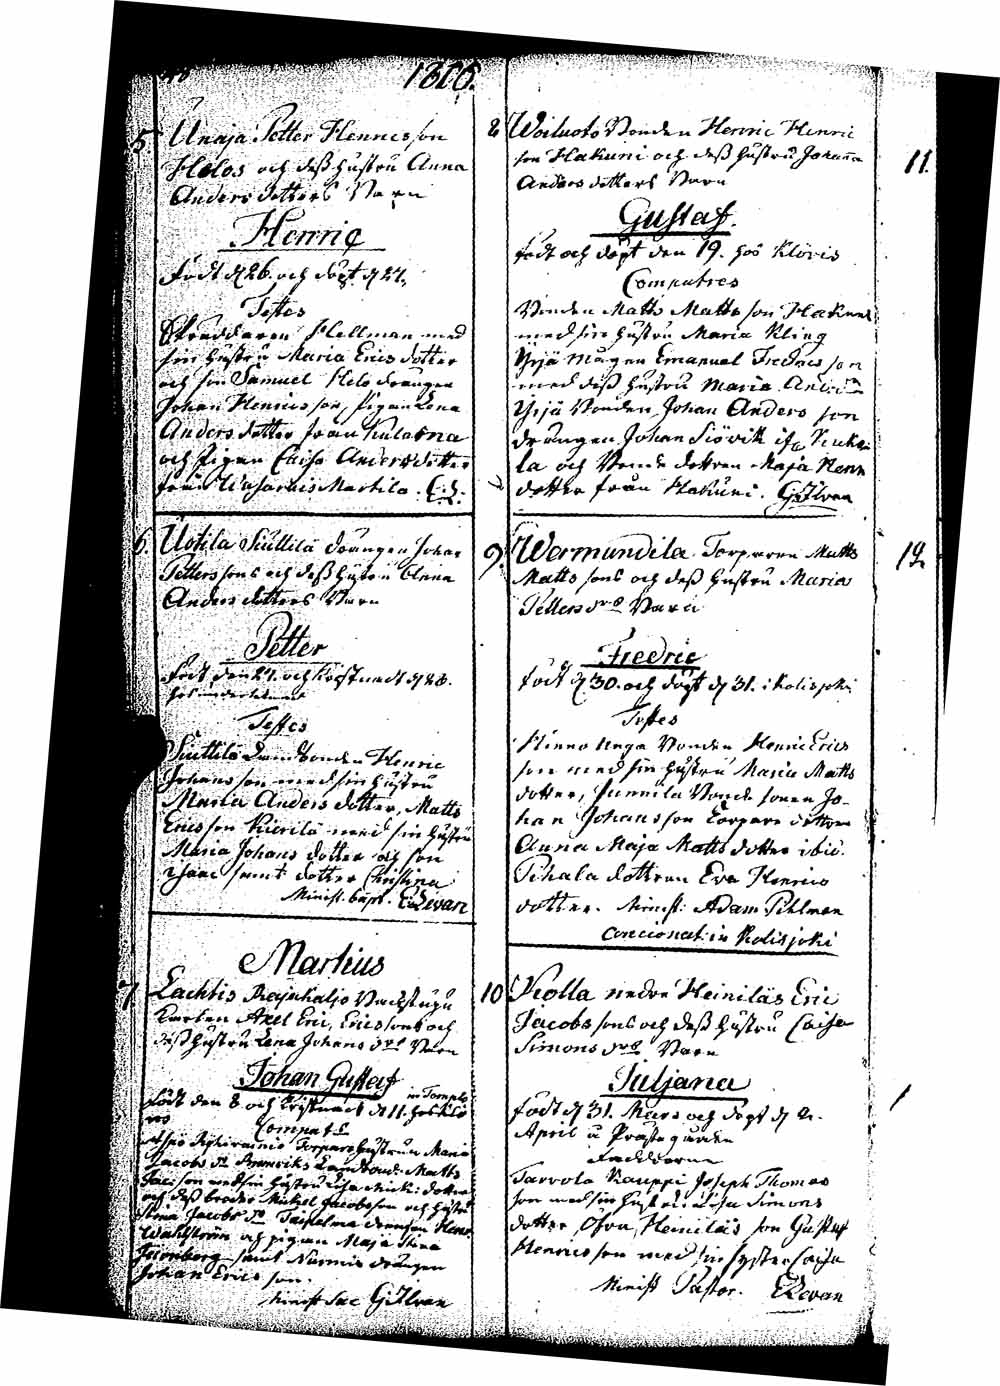 48
1806.
5 Unaja Petter Henricsson
Helos och deß Hustru Anna
Anders dotters Barn
Henric
född d 26. och döpt d 27.
Testes
Skräddaren Hellman med
sin Hustru Maria Erics dotter
och son Samuel Helo drängen
Johan Henricsson, pigan Lena
Anders dotter från Kulamaa
och pigan Caisa Anders dotter
från Wasarais Martila.
6. Uotila Siuttilä drängen Johan
Petterssons och deß Hustru Anna
Anders dotters Barn
Petter
född den 27. och Christnad d 28.
Testes
Siuttilä Landbonden Henric
Johansson med sin Hustru
Maria Anders dotter, Matts
Ericsson Kierilä med sin Hustru
Maria Johans dotter och son
Isaac samt dotter Christina
Minist. bapt. E Levan
Martius
7 Lachtis Rajakaljo Backstugu
Karlen Axel Eric, Ericssons och
deß Hustru Lena Johans drs Barn
Johan Gustaf
född den 8 och Christnad d 11. hos
in Templo
Compat
Torpare Hustrun Maria
Jacobs dr Landbond. Matts
son med sin Hustru Lisa dotter
och deß broder Michel Jacobsson och Hustru
Stina Jacobs dr drängen Henr.
Wahlström och pigan Maja Stina
samt Nurmis drängen
Johan Ericsson.
Minist Sac Gj Ilvan
8 Woiluoto Bonden Henric Henric
son Hakuni och deß Hustru Johanna
Anders dotters Barn
11.
Gustaf.
född och döpt den 19. hos Klövis
Compatres
Bonden Matts Mattsson Hakuni
med sin Hustru Maria Kling
Yrjä Mågen Emanuel Fredricsson
med deß Hustru Maria
Yrjä Bonden Johan Andersson
drängen Johan Siövik ifr Kuka
la och Bonde dottren Maja Henr
dotter från Hakuni. Gj Ilvan
9. Wermundila Torparen Matts
Mattssons och deß Hustru Maria
Petters drs Barn
12.
Fredric
född d 30. och döpt d 31. i Kolisjoki
Testes
Hinno Unga Bonden Henric Erics
son med sin Hustru Maria Matts
dotter, Junnila Bonde sonen Jo-
han Johansson Torpare dottren
Anna Maja Matts dotter ibid.
Pihala dottren Eva Henrics
dotter. Minist: Adam Pihlman
concionat: in Kolisjoki
10 Krolla nedre Heiniläs Eric
Jacobssons och deß Hustru Caisa
Simons drs Barn
Juljana
född d 31. Mars och döpt d 2.
1
April i Prästegården
Faddrarne
Tarvola Kauppi Joseph Thomas
son med sin Hustru Lisa Simons
dotter Öfra, Heiniläs son Gustaf
Henricsson med sin syster Caisa
Minist Pastor. E Levan